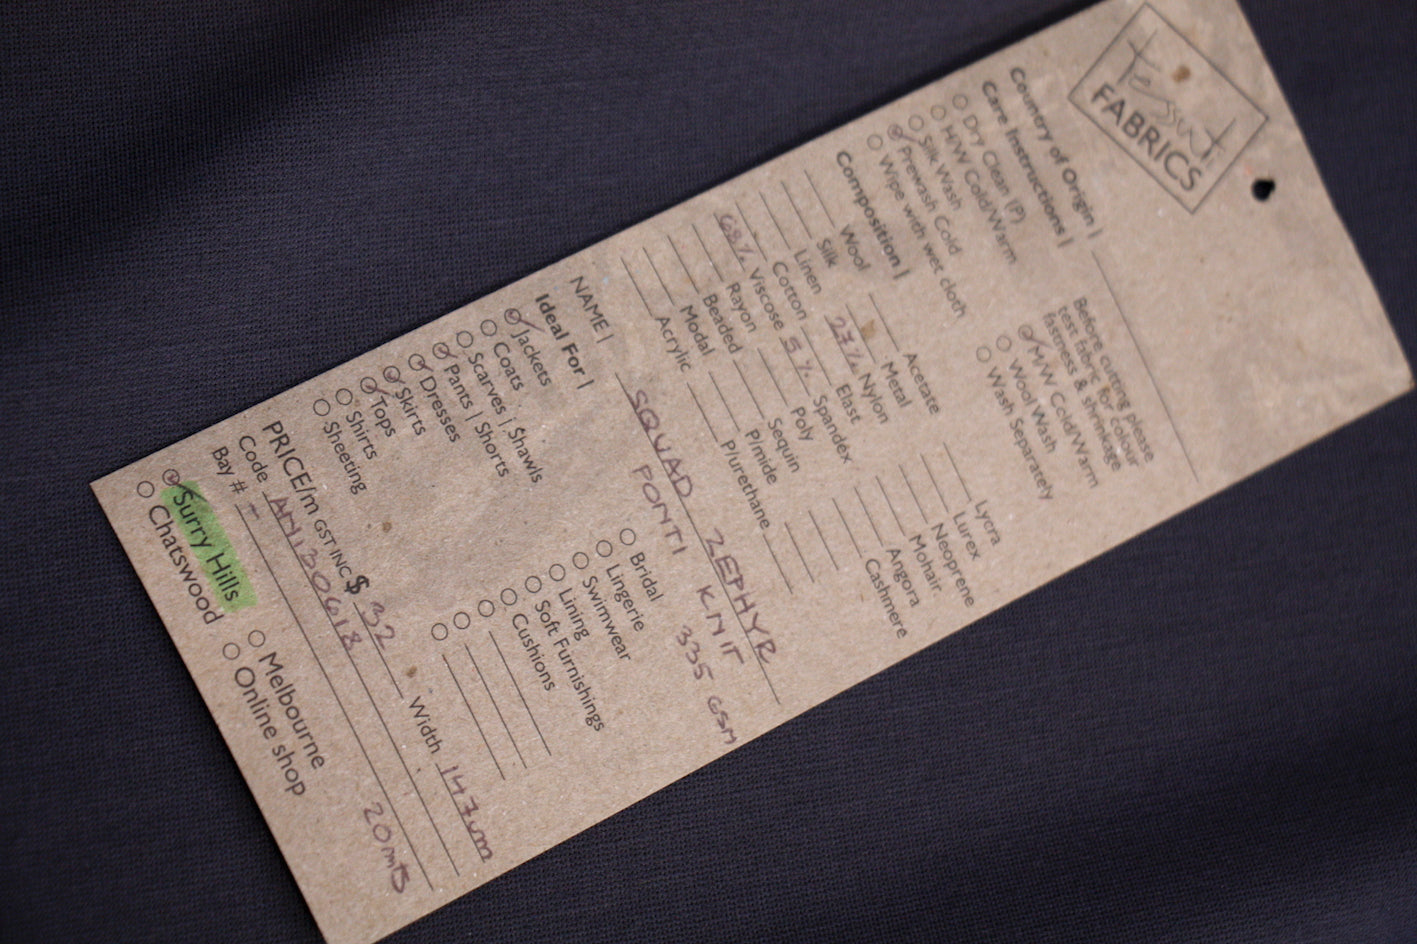 tessuti
FABRICS
Country of Origin |
Care Instructions |
Dry Clean (P)
H/W Cold/Warm
Silk Wash
Prewash Cold
Wipe with wet cloth
Before cutting please
test fabric for colour
fastness & shrinkage
M/W Cold/Warm
Wool Wash
Wash Separately
Composition |
Wool
Silk
Linen
Cotton
68% Viscose
Rayon
Beaded
Modal
Acrylic
Acetate
Metal
27% Nylon
Elast
5% Spandex
Poly
Sequin
P/mide
P/urethane
Lycra
Lurex
Neoprene
Mohair
Angora
Cashmere
NAME | SQUAD ZEPHYR
PONTI KNIT
335 GSM
Ideal For |
Jackets
Coats
Scarves | Shawls
Pants | Shorts
Dresses
Skirts
Tops
Shirts
Sheeting
Bridal
Lingerie
Swimwear
Lining
Soft Furnishings
Cushions
PRICE/m GST INC $ 32 Width 147cm
Code ANI30618
Bay # - 20mts
Surry Hills
Chatswood
Melbourne
Online shop